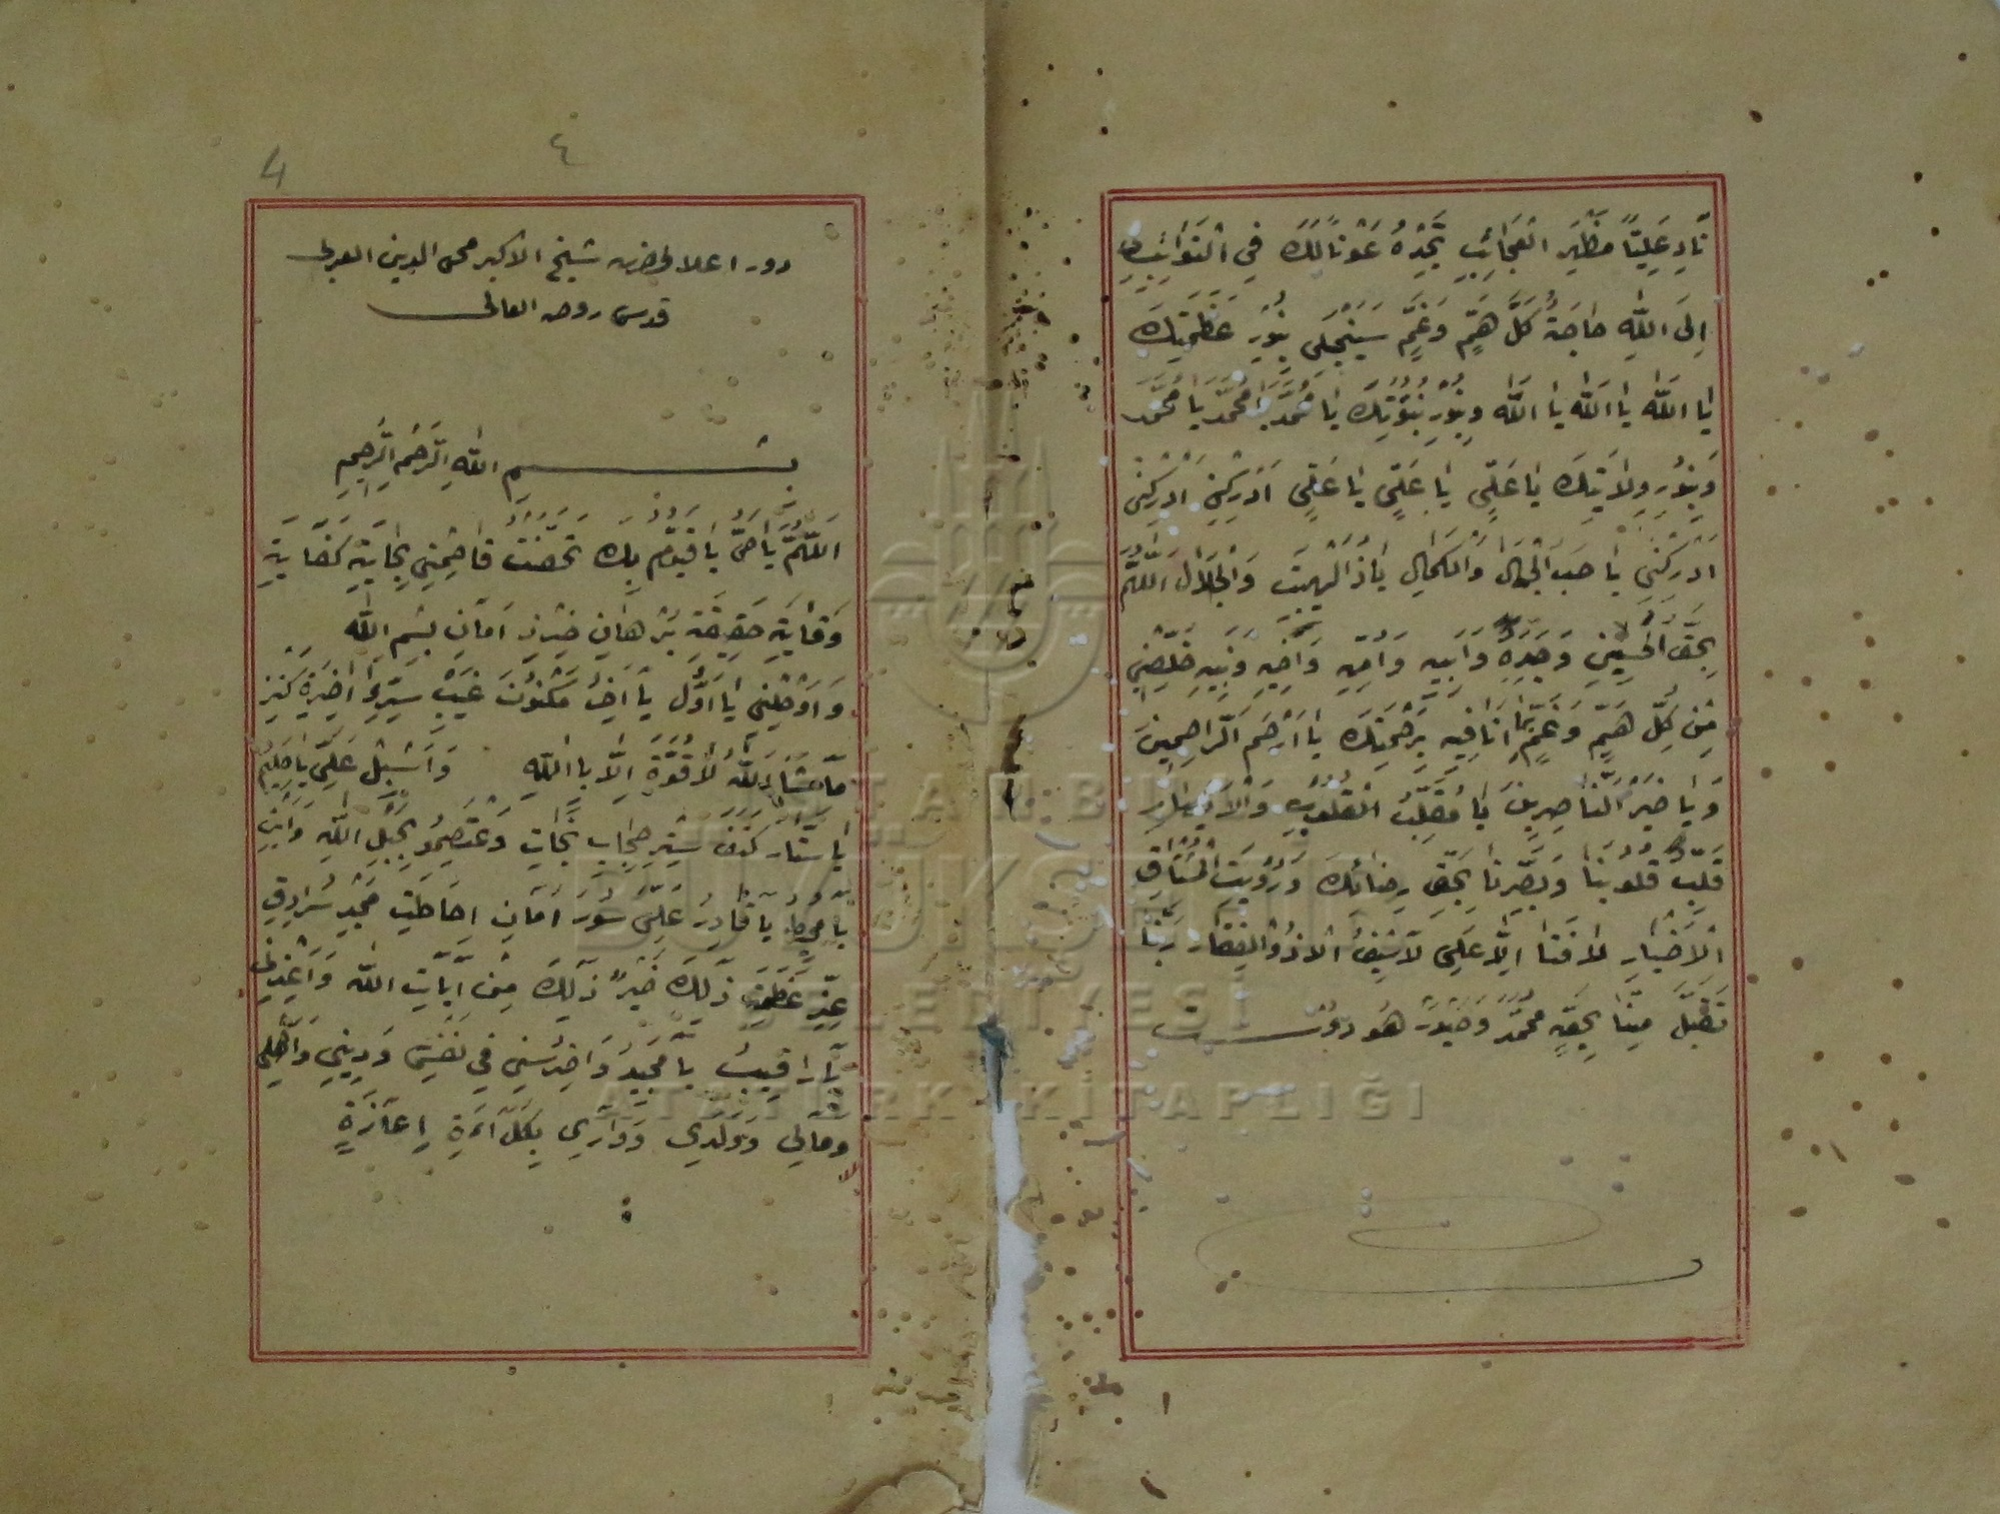 نَادِ عَلِيّاً مَظْهَرِ الْعَجَائِبِ تَجِدْهُ عَوْناً لَكَ فِي النَّوَائِبِ
اِلَى اللّٰهِ حَاجَةُ كُلَّ هَمٍّ وَغَمٍّ سَيَنْجَلِي بِنُورِ عَظَمَتِكَ
يَا اَللّٰه يَا اَللّٰه يَا اَللّٰه وَبِنُورِ نُبُوَّتِكَ يَا مُحَمَّدْ يَا مُحَمَّدْ يَا مُحَمَّدْ
وَبِنُورِ وِلَايَتِكَ يَا عَلِيّ يَا عَلِيّ يَا عَلِيّ اَدْرِكْنِي اَدْرِكْنِي
اَدْرِكْنِي يَا صَحِبَ الْجَمَالِ وَالْكَمَالِ يَا ذَالْهَيْبَتَ وَالْجَلَالِ اَللّٰهُمَّ
بِحَقِّ الْحُسَيْنِ وَجَدِّهِ وَاَبِيهِ وَاُمِّهِ وَاَخِيهِ وَبَنِيهِ خَلِّصْنِي
مِنْ كُلِّ هَمٍّ وَغَمٍّ اَنَا فِيهِ بِرَحْمَتِكَ يَا اَرْحَمَ الرَّاحِمِينَ
وَيَا خَيْرَ النَّاصِرِينَ يَا مُقَلِّبَ الْقُلُوبِ وَالْاَبْصَارِ
قَلِّبْ قُلُوبَنَا وَبَصِّرْنَا بِحَقِّ رِضَائِكَ وَرُؤْيَتِ الْمُشْتَاقِ
الْاَخْيَارِ لَا فَتَا اِلَّا عَلِي لَا سَيْفُ اِلَّا ذُو الْفِقَارْ رَبَّنَا
تَقَبَّلْ مِنَّا بِحَقِّ مُحَمَّدْ وَحَيْدَرْ هُو دوست
4
٤
دور اعلا حضرت شيخ الاكبر محى الدين العربى
قدس روحه العالى
بسم الله الرَّحْمٰنِ الرَّحِيمِ
اَللّٰهُمَّ يَا حَىُّ يَا قَيُّومُ بِكَ تَحَصَّنْتُ فَاحْمِنِي بِحِمَايَةِ كِفَايَةِ
وِقَايَةِ حَقِيقَةِ بُرْهَانِ حِرْزِ اَمَانِ بِسْمِ اللّٰه
وَاَدْخِلْنِي يَا اَوَّلُ يَا آخِرُ مَكْنُونَ غَيْبِ سِرِّ دَائِرَةِ كَنْزِ
مَا شَاءَ اللّٰهُ لَا قُوَّةَ اِلَّا بِاللّٰهِ وَاَسْبِلْ عَلَيَّ يَا حَلِيمُ
يَا سَتَّارُ كَنَفَ سِتْرِ حِجَابِ نَجَاتِ وَعْتَصِمُو بِحَبْلِ اللّٰهِ وَابْنِ
يَا مُحِيطُ يَا قَادِرُ عَلَيَّ سُورَ اَمَانِ اِحَاطَتِ مَجْدِ سُرَادِقِ
عِزِّ عَظَمَتِ ذٰلِكَ خَيْرٌ ذٰلِكَ مِنْ اٰيَاتِ اللّٰه وَاَعِذْنِي
يَا رَقِيبُ يَا مُجِيدُ وَاحْرُسْنِي فِي نَفْسِي وَدِينِي وَاَهْلِي
وَمَالِي وَوَلَدِي